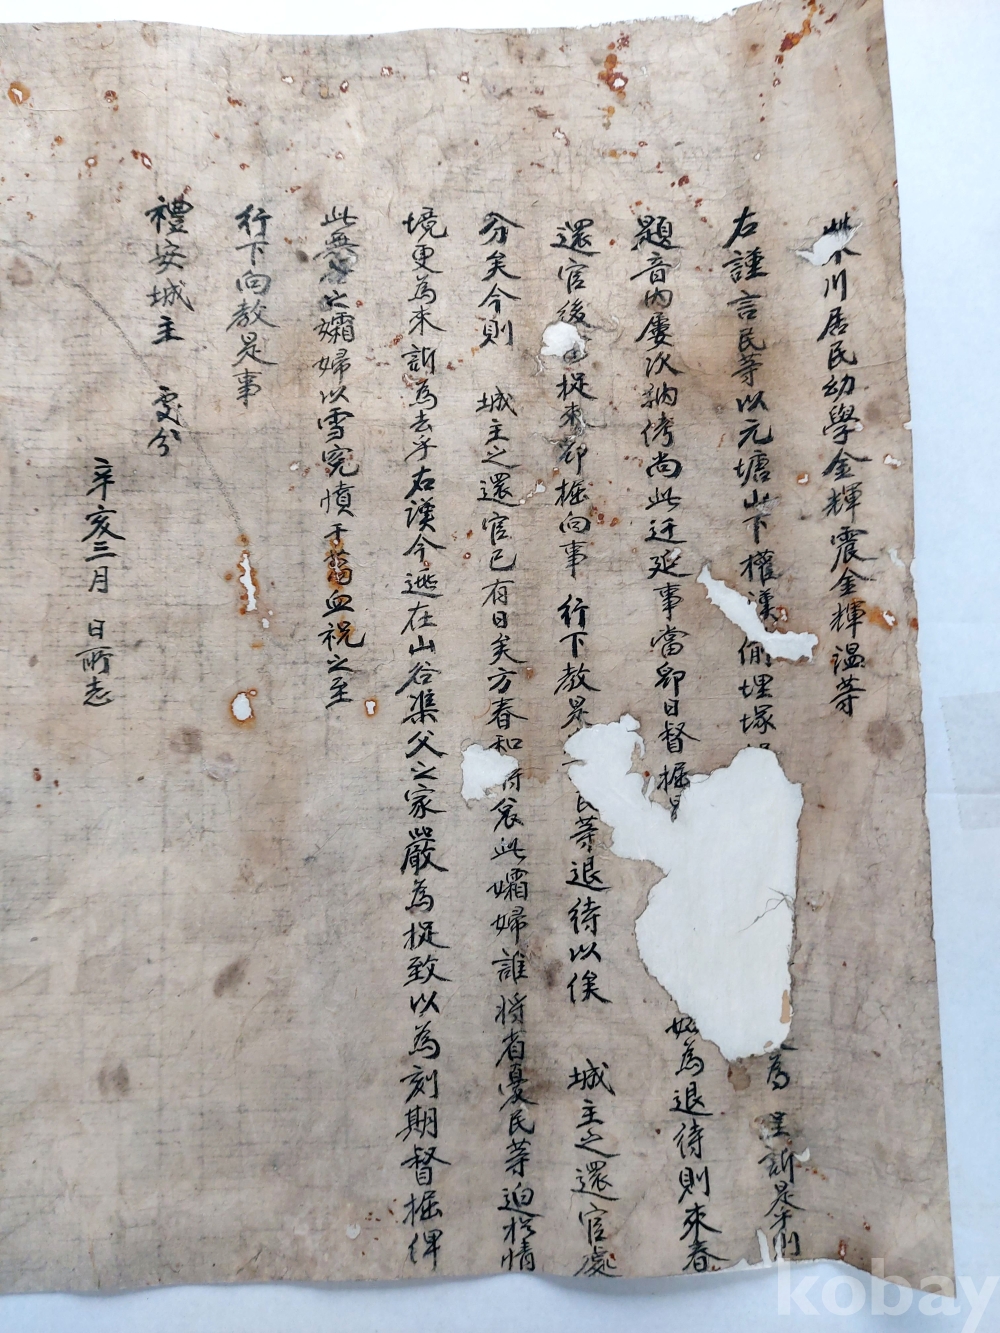 川居民幼學金輝震金輝溫等
右謹言民等以元塘山下權漢偷埋塚 爲 呈訴是乎則
題音內屢次納侤尙此迁延事當卽日督掘 姑爲退待則來春
還官後 捉來卽掘向事 行下敎是 民等退待以俟 城主之還官處
分矣今則 城主之還官已有日矣方春和 此孀婦誰將省憂民等迫於情
境更爲來訴爲去乎右漢今逃在山谷渠父之家嚴爲捉致以爲刻期督掘俾
此無 之孀婦以雪寃憤千萬血祝之至
行下向敎是事
禮安城主 處分
辛亥三月 日所志
kobay